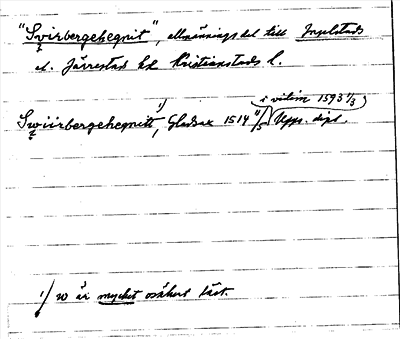 "Svirbergehegnit", allmänningsdel till Ingelstads
el. Järrestad hd Kristianstads l.
i vidim 1593 1/3
Swiirbergehegnitt, 1) Gladsax 1514 11/5 Upps. dipl.
1/ w är mycket osäkert läst.